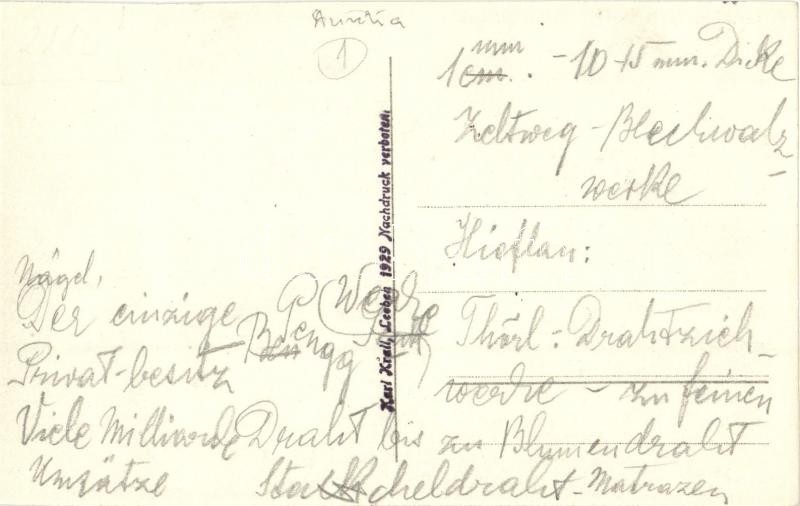 Austria
1
mm
1 cm. - 10-15 mm. Dicke
Zeltweg - Blechwalz-
werke
Hieflau:
Thörl - Drahtzieh-
werke - zu feinen
Draht bis zu Blumendraht
Stacheldraht - Matrazen
Nägel,
Der einzige
Werke
Pengg
Privat-besitz
Viele Milliarde
Umsätze
Karl Krall, Leoben 1929 Nachdruck verboten.